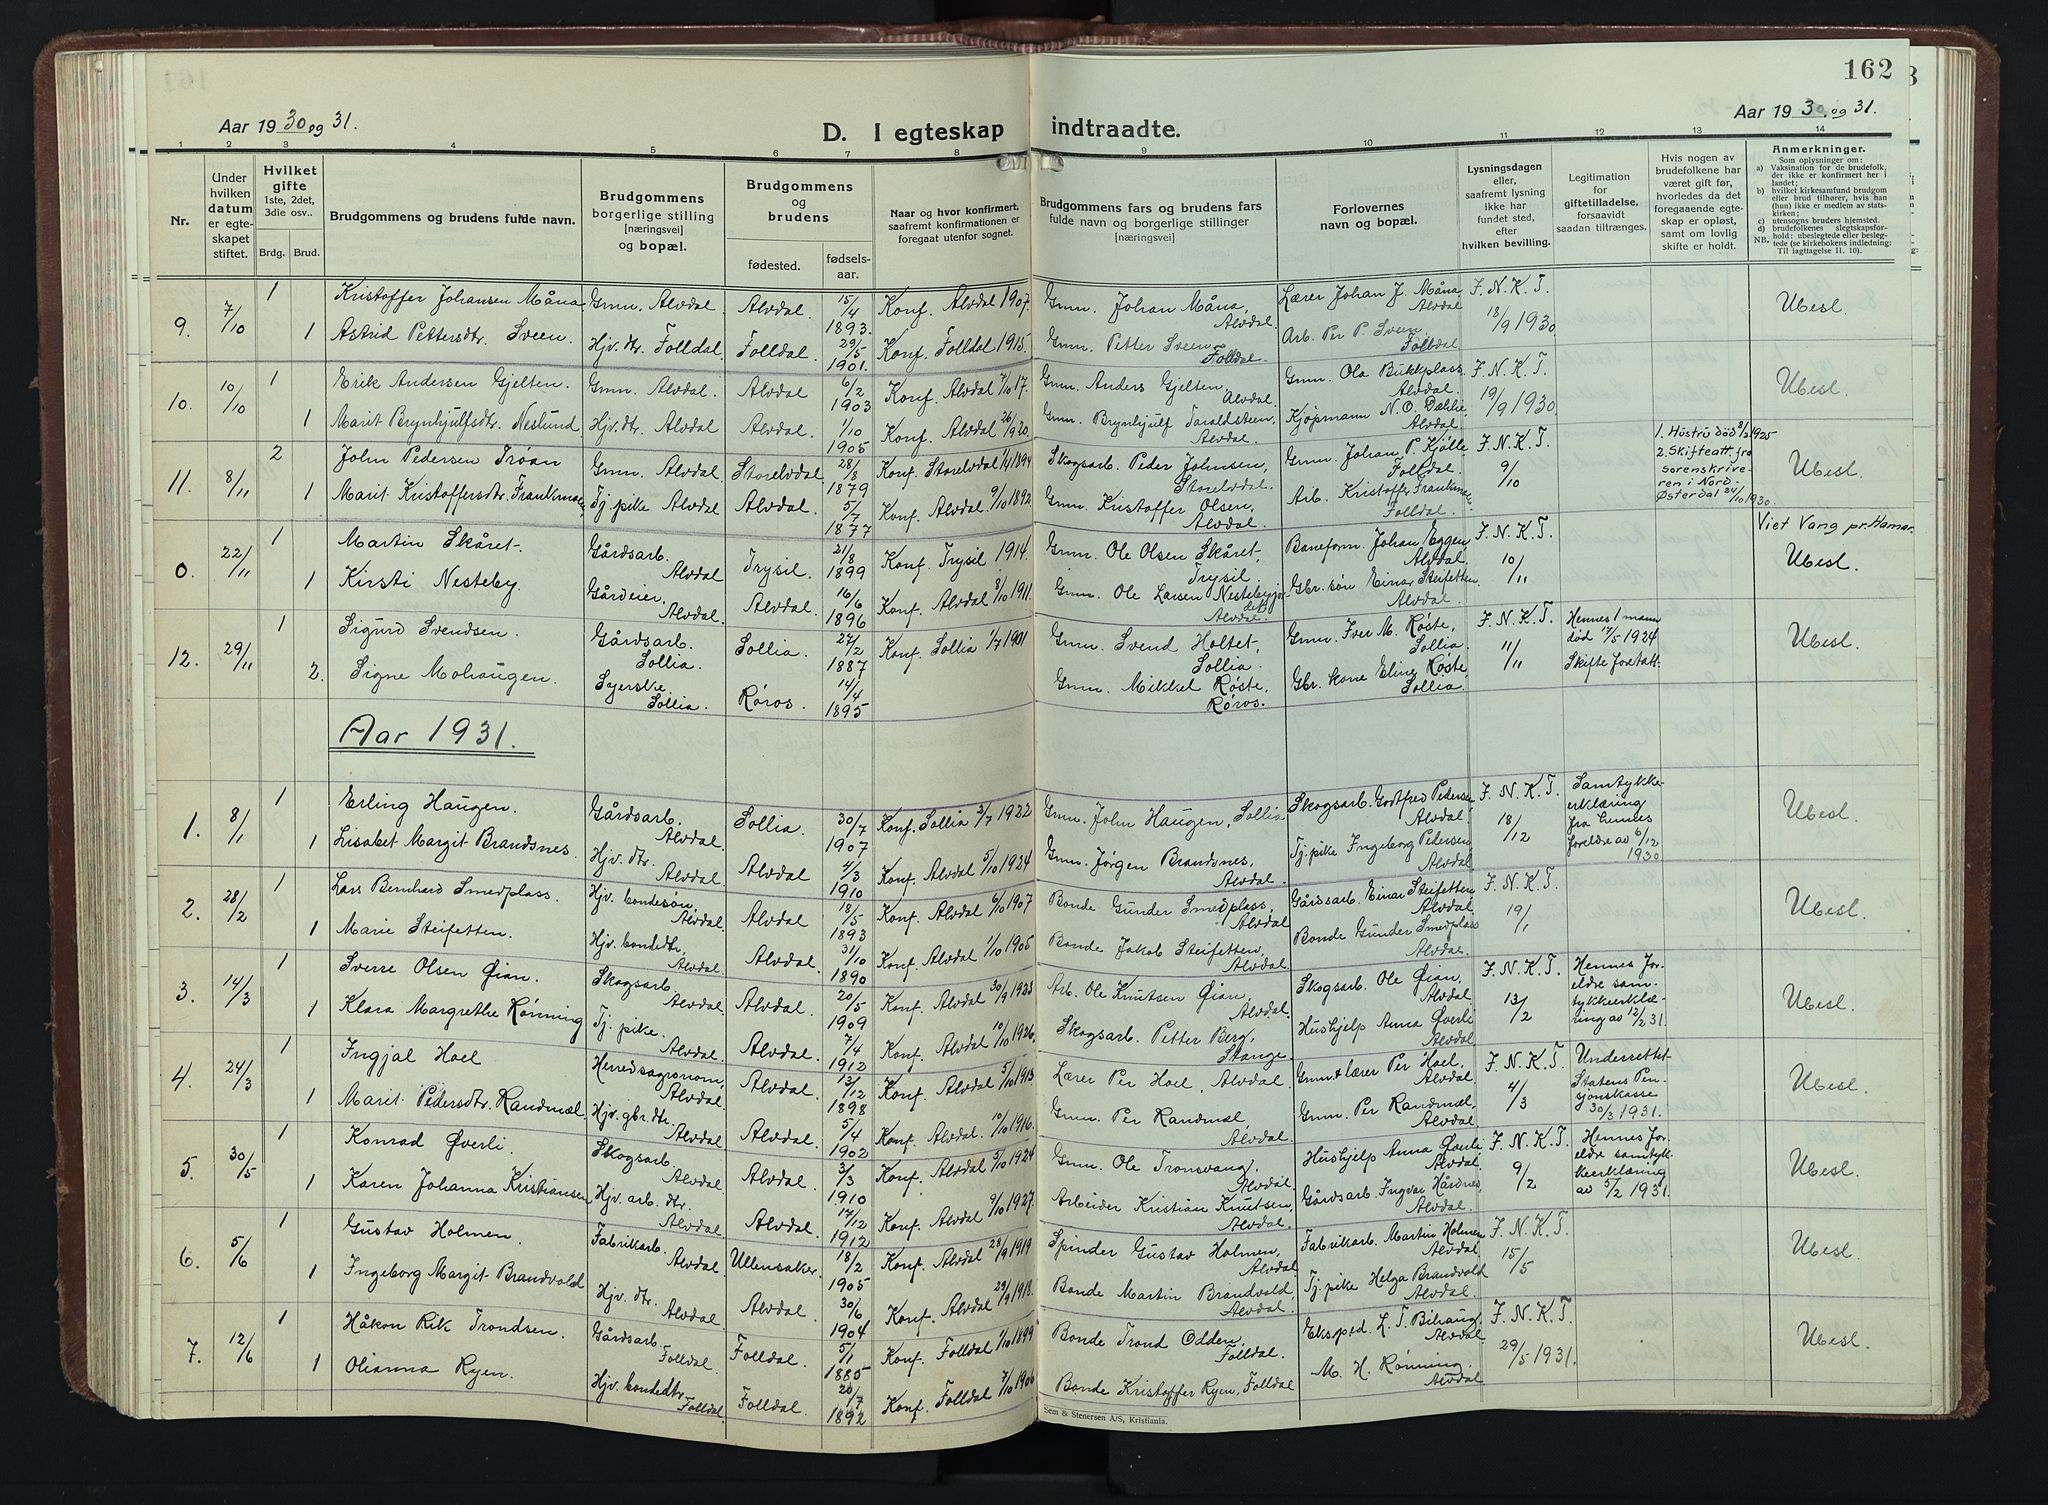 162
Aar 1930 og 31.
D. I egteskap indtraadte.
Aar 1930 og 31.
1 2 3 4 5 6 7 8 9 10 11 12 13 14
Nr.
Under hvilken datum er egteskapet stiftet.
Hvilket gifte 1ste, 2det, 3die osv..
Brdg. Brud.
Brudgommens og brudens fulde navn.
Brudgommens borgerlige stilling [næringsvei] og bopæl.
Brudgommens og brudens
fødested. fødselsaar.
Naar og hvor konfirmert, saafremt konfirmationen er foregaat utenfor sognet.
Brudgommens fars og brudens fars fulde navn og borgerlige stillinger [næringsvei]
Forlovernes navn og bopæl.
Lysningsdagen eller, saafremt lysning ikke har fundet sted, efter hvilken bevilling.
Legitimation for giftetilladelse, forsaavidt saadan tiltrænges.
Hvis nogen av brudefolkene har været gift før, hvorledes da det foregaaende egteskap er opløst, samt om lovlig skifte er holdt.
Anmerkninger.
Som oplysninger om:
a) Vaksination for de brudefolk, der ikke er konfirmert her i landet;
b) hvilket kirkesamfund brudgom eller brud tilhører, hvis han (hun) ikke er medlem av statskirken;
c) utensogns bruders hjemsted.
d) brudefolkenes slegtskapsforhold: ubeslegtede eller beslegtede (se kirkebokens indledning: Til iagttagelse II. 10).
NB.
9. 7/10 1 Kristoffer Johansen Måna Gmn. Alvdal Alvdal 15/4 1893. Konf. Alvdal 1907. Gmn. Johan Måna, Alvdal. Lærer Johan J. Måna Alvdal F. N. K. T. 18/9 1930 Ubesl.
1 Astrid Pettersdtr. Sveen. Hjv. dtr. Folldal Folldal. 29/5 1901. Konf. Folldal 1915. Gmn. Petter Sveen Folldal. Arb. Per P. Sveen Folldal
10. 10/10 1 Erik Andersen Gjelten. Gmn. Alvdal Alvdal 6/2 1903 Konf. Alvdal 7/10 17. Gmn. Anders Gjelten, Alvdal. Gmn. Ola Bukkplass Alvdal. F. N. K. T. 19/9 1930 Ubesl.
1 Marit Brynhjulfsdtr. Neslund Hjv. dtr. Alvdal Alvdal. 1/10 1905 Konf. Alvdal 26/9 20. Gmn. Brynhjulf Taraldsteen, Alvdal. Kjøpmann N. O. Dæhlie, Alvdal.
11. 8/11 2 John Pedersen Trøan Gmn. Alvdal Storelvdal 28/8 1879 Konf. Storelvdal 1894 Skogsarb. Peder Johnsen, Storelvdal. Gmn. Johan P. Kjølle Folldal. F. N. K. T. 9/10 1. Hustru død 8/2 1925 2. Skifteatt. fra sorenskriveren i Nord-Østerdal 24/10 1930. Ubesl.
1 Marit Kristoffersdtr. Frankmoen Tj. pike Alvdal Alvdal. 5/7 1877 Konf. Alvdal 9/10 1892. Gmn. Kristoffer Olsen, Alvdal. Arb. Kristoffer Frankmoen Folldal.
0. 22/11 1 Martin Skåret. Gårdsarb. Alvdal Trysil. 21/8 1899 Konf. Trysil 1914. Gmn. Ole Olsen Skåret, Trysil. Baneform. Johan Eggen Alvdal. F. N. K. T. 10/11 Viet Vang pr. Hamar. Ubesl.
1 Kirsti Nesteby. Gårdeier, Alvdal. Alvdal. 16/6 1896 Konf. Alvdal 8/10 1911. Gmn. Ole Larsen Nestebyjordet Alvdal. Gbr. søn Einar Steifetten Alvdal.
12. 29/11 1 Sigurd Svendsen. Gårdsarb. Sollia. Sollia. 27/2 1887 Konf. Sollia 1/7 1901 Gmn. Svend Holtet, Sollia. Gmn. Iver M. Røste, Sollia. F. N. K. T. 11/11 Hennes 1 mann død 17/5 1924 Skifte foretatt. Ubesl.
2. Signe Mohaugen. Syerske. Sollia. Røros. 14/4 1895 Gmn. Mikkel Røste, Røros. Gbr. kone Eline Røste, Sollia.
Aar 1931.
1. 8/1 1 Erling Haugen. Gårdsarb. Alvdal. Sollia. 30/7 1907 Konf. Sollia 2/7 1922 Gmn. John Haugen, Sollia Skogsarb. Godtfred Pedersen Alvdal. F. N. K. T. 18/12 Samtykkeerklæring fra hennes foreldre av 6/12 1930 Ubesl.
1 Lisabet Margit Brandsnes. Hjv. dtr. Alvdal Alvdal 4/3 1910 Konf. Alvdal 5/10 1924 Gmn. Jørgen Brandsnes, Alvdal. Tj. pike Ingeborg Pedersen Alvdal
2. 28/2 1 Lars Bernhard Smedplass. Hjv. bondesøn, Alvdal. Alvdal 18/5 1893 Konf. Alvdal 6/10 1907 Bonde Gunder Smedplass, Alvdal Gårdsarb. Einar Steifetten Alvdal. F. N. K. T. 19/1 Ubesl.
1 Marie Steifetten. Hjv. bondedtr. Alvdal Alvdal. 31/10 1890 Konf. Alvdal 1/10 1905 Bonde Jakob Steifetten, Alvdal. Bonde Gunder Smedplass Alvdal.
3. 14/3 1 Sverre Olsen Øian. Skogsarb. Alvdal Alvdal. 20/5 1909 Konf. Alvdal 30/9 1923 Arb. Ole Knutsen Øian, Alvdal. Skogsarb. Ole Øian, Alvdal F. N. K. T. 13/2 Hennes foreldre samtykkeerklæring av 12/2 31. Ubesl.
1 Klara Margrethe Rønning Tj. pike. Alvdal. Alvdal. 7/4 1912 Konf. Alvdal 10/10 1926. Skogsarb. Petter Berg, Stange. Hushjelp Anna Øverli Alvdal
4. 24/3 1 Ingjal Hoel Herredsagronom, Alvdal. Alvdal. 13/12 1898 Konf. Alvdal 5/10 1913 Lærer Per Hoel, Alvdal. Gmn. & lærer Per Hoel, Alvdal F. N. K. T. 4/3 Underrettet Statens Pensjonskasse 30/3 1931. Ubesl.
1 Marit Pedersdtr. Randmæl. Hjv. gbr. dtr. Alvdal Alvdal. 5/4 1902 Konf. Alvdal. 10/10 1916. Gmn. Per Randmæl, Alvdal. Gmn. Per Randmæl, Alvdal.
5. 30/5 1 Konrad Øverli. Skogsarb. Alvdal. Alvdal 3/3 1910 Konf. Alvdal 5/10 1924 Gmn. Ole Tronsvang, Alvdal. Hushjelp Anna Øverli Alvdal. F. N. K. T. 9/2 Hennes foreldre samtykkeerklæring av 5/2 1931. Ubesl.
1 Karen Johanna Kristiansen Hjv. arb. dtr. Alvdal Alvdal. 17/12 1912 Konf. Alvdal 9/10 1927. Arbeider Kristian Knutsen, Alvdal. Gårdsarb. Ingvar Hårdnes, Alvdal.
6. 5/6 1 Gustav Holmen. Fabrikarb. Alvdal. Ullensaker. 18/2 1905 Konf. Alvdal 28/9 1919 Spinder Gustav Holmen, Alvdal Fabrikarb. Martin Holmen Alvdal F. N. K. T. 15/5 Ubesl.
1 Ingeborg Margit Brandvold Hjv. dtr. Alvdal Alvdal. 30/6 1904 Konf. Alvdal 29/9 1918. Bonde Martin Brandvold, Alvdal. Tj. pike Helga Brandvold Alvdal.
7. 12/6 1 Håkon Rik Trondsen. Gårdsarb. Folldal Folldal. 5/1 1885 Konf. Folldal 1/10 1899 Bonde Trond Odden, Folldal. Eksped. L. T. Bihaug Alvdal F. N. K. T. 29/5 1931. Ubesl.
1 Olianna Ryen. Hjv. bondedtr. Folldal. Folldal. 20/7 1892 Konf. Folldal 7/10 1906 Bonde Kristoffer Ryen, Folldal M. H. Rønning. Alvdal
Sem & Stenersen A/S, Kristiania.